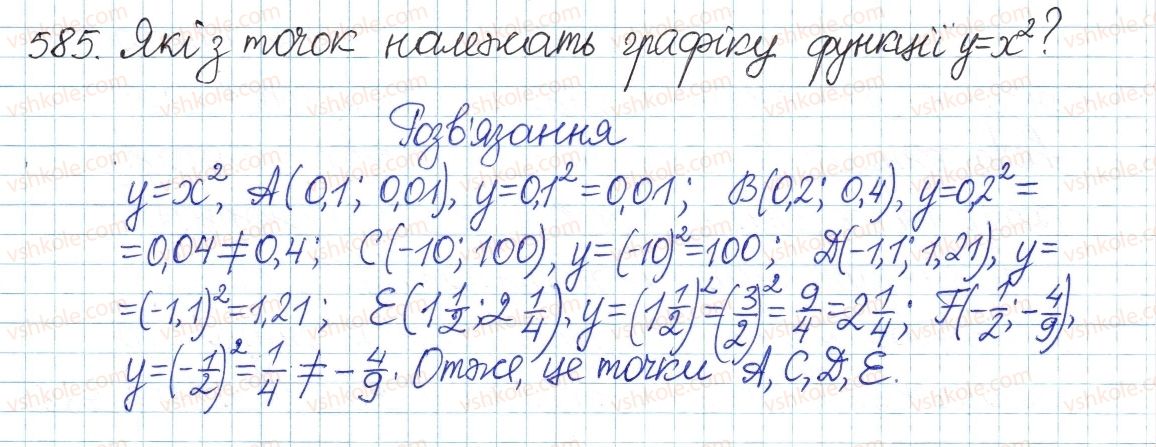 585. Які з точок належать графіку функції y=x²?
Розв'язання
y=x², A(0,1; 0,01), y=0,1²=0,01; B(0,2; 0,4), y=0,2²=
=0,04≠0,4; C(-10; 100), y=(-10)²=100; D(-1,1; 1,21), y=
=(-1,1)²=1,21; E(1 1/2; 2 1/4), y=(1 1/2)²=(3/2)²=9/4=2 1/4; F(-1/2; -4/9),
y=(-1/2)²=1/4≠-4/9. Отже, це точки A, C, D, E.